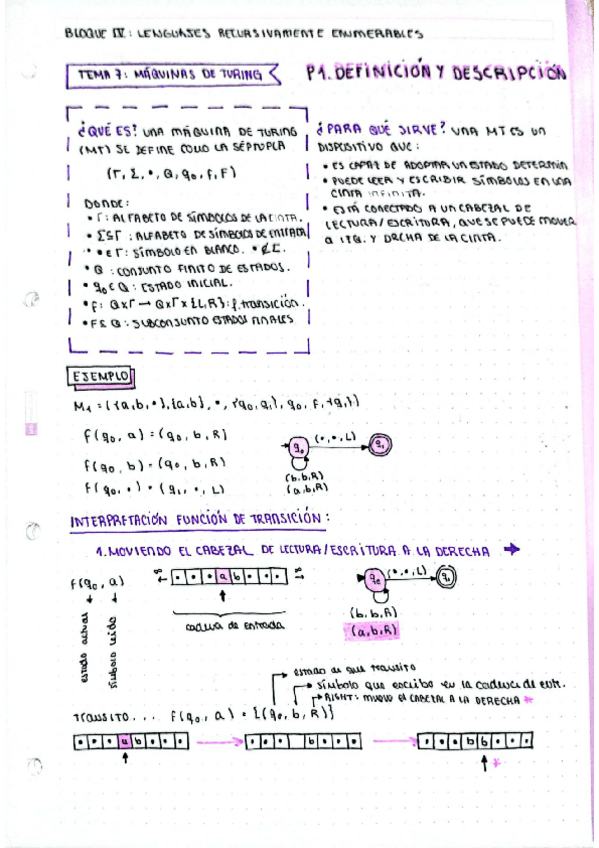 BLOQUE IV: LENGUAJES RECURSIVAMENTE ENUMERABLES
TEMA 7: MÁQUINAS DE TURING
P1. DEFINICIÓN Y DESCRIPCIÓN
¿QUÉ ES? UNA MÁQUINA DE TURING
(MT) SE DEFINE COMO LA SÉPTUPLA
(Γ, Σ, •, Q, q₀, f, F)
DONDE:
• Γ: ALFABETO DE SÍMBOLOS DE LA CINTA.
• Σ⊆Γ: ALFABETO DE SÍMBOLOS DE ENTRADA
• • ∈ Γ: SÍMBOLO EN BLANCO. • ∉ Σ.
• Q: CONJUNTO FINITO DE ESTADOS.
• q₀ ∈ Q: ESTADO INICIAL.
• f: Q×Γ → Q×Γ×{L,R}: f. transición.
• F⊆Q: SUBCONJUNTO ESTADOS FINALES
¿PARA QUÉ SIRVE? UNA MT ES UN
DISPOSITIVO QUE:
• ES CAPAZ DE ADOPTAR UN ESTADO DETERMIN
• PUEDE LEER Y ESCRIBIR SÍMBOLOS EN UNA
CINTA INFINITA.
• ESTÁ CONECTADO A UN CABEZAL DE
LECTURA/ESCRITURA, QUE SE PUEDE MOVER
A IZQ. Y DRCHA DE LA CINTA.
EJEMPLO
M₁ = ({a,b,•},{a,b}, •, {q₀,q₁}, q₀, F, {q₁})
f(q₀, a) = (q₀, b, R)
f(q₀, b) = (q₀, b, R)
f(q₀, •) = (q₁, •, L)
q₀
(•,•,L)
q₁
(b,b,R)
(a,b,R)
INTERPRETACIÓN FUNCIÓN DE TRANSICIÓN:
1. MOVIENDO EL CABEZAL DE LECTURA/ESCRITURA A LA DERECHA →
f(q₀, a)
estado actual
símbolo leído
∞ • • • a b • • • ∞
cadena de entrada
q₀
(•,•,L)
q₁
(b,b,R)
(a,b,R)
estado al que transito
símbolo que escribo en la cadena de entr.
RIGHT: MUEVO EL CABEZAL A LA DERECHA *
TRANSITO... f(q₀, a) = {(q₀, b, R)}
• • • a b • • •
• • • b • • •
• • • b b • • •
*